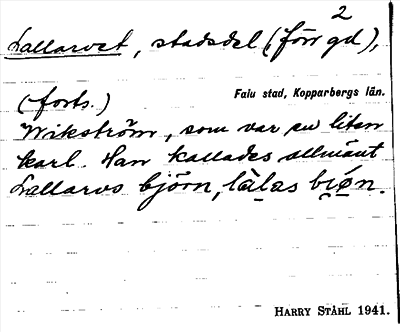 2
Lallarvet, stadsdel (förr gd),
(forts.)
Falu stad, Kopparbergs län.
Wikström, som var en liten
karl. Han kallades allmänt
Lallarvs björn, làlas biǿn.
HARRY STÅHL 1941.